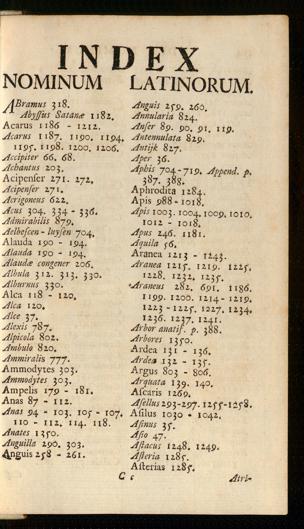 INDEX
NOMINUM LATINORUM.
ABramus 318.
Abyssus Satanæ 1182.
Acarus 1186 - 1212.
Acarus 1187. 1190. 1194.
1195. 1198. 1200. 1206.
Accipiter 66. 68.
Achantus 203.
Acipenser 271. 272.
Acipenser 271.
Acrigoneus 622.
Acus 304. 334 - 336.
Admirabilis 879.
Aelbescen - luysen 704.
Alauda 190 - 194.
Alauda 190 - 194.
Alaudæ congener 206.
Albula 312. 313. 330.
Alburnus 330.
Alca 118 - 120.
Alca 120.
Alce 37.
Alexis 787.
Alpicola 802.
Ambulo 820.
Ammiralis 777.
Ammodytes 303.
Ammodytes 303.
Ampelis 179 - 181.
Anas 87 - 112.
Anas 94 - 103. 105 - 107.
110 - 112. 114. 118.
Anates 1350.
Anguilla 290. 303.
Anguis 258 - 261.
Anguis 259. 260.
Annularia 824.
Anser 89. 90. 91. 119.
Antennulata 829.
Antijk 827.
Aper 36.
Aphis 704-719. Append. p.
387. 388.
Aphrodita 1284.
Apis 988-1018.
Apis 1003. 1004. 1009. 1010.
1012 - 1018.
Apus 246. 1181.
Aquila 56.
Aranea 1213 - 1243.
Aranea 1215. 1219. 1225.
1228. 1232. 1235.
Araneus 282. 691. 1186.
1199. 1200. 1214-1219.
1223-1225. 1227. 1234.
1236. 1237. 1241.
Arbor anatif. p. 388.
Arbores 1350.
Ardea 131 - 136.
Ardea 132 - 135.
Argus 803 - 806.
Arquata 139. 140.
Ascaris 1269.
Asellus 293-297. 1255-1258.
Asilus 1030 - 1042.
Asinus 35.
Asio 47.
Astacus 1248. 1249.
Asteria 1285.
Asterias 1285.
C c
Atri-